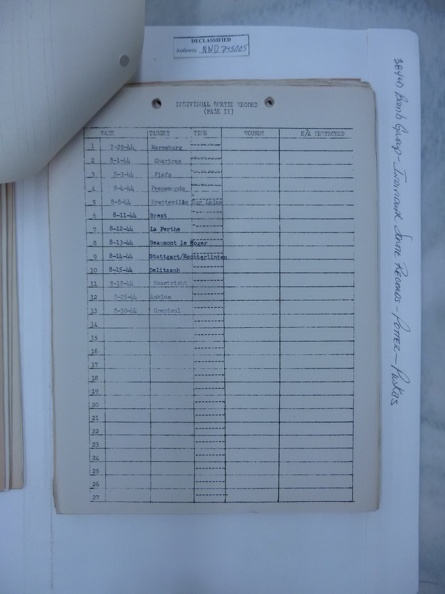 DECLASSIFIED
Authority NND 745005
384th Bomb Group - Individual Sortie Records - Potter - Pilots
INDIVIDUAL SORTIE RECORD
(PAGE II)
DATE TARGET TIME WOUNDS E/A DESTROYED
1 7-29-44 Merseburg
2 8-1-44 Chartres
3 8-3-44
4 8-4-44 Peenemunde
5 8-8-44 Bretteville Sur Laize
6 8-11-44 Brest
7 8-12-44 La Perthe
8 8-13-44 Beaumont le Roger
9 8-14-44 Stuttgart/Mediterlinien
10 8-15-44 Delitzsch
11
12
13 8-30-44
14
15
16
17
18
19
20
21
22
23
24
25
26
27